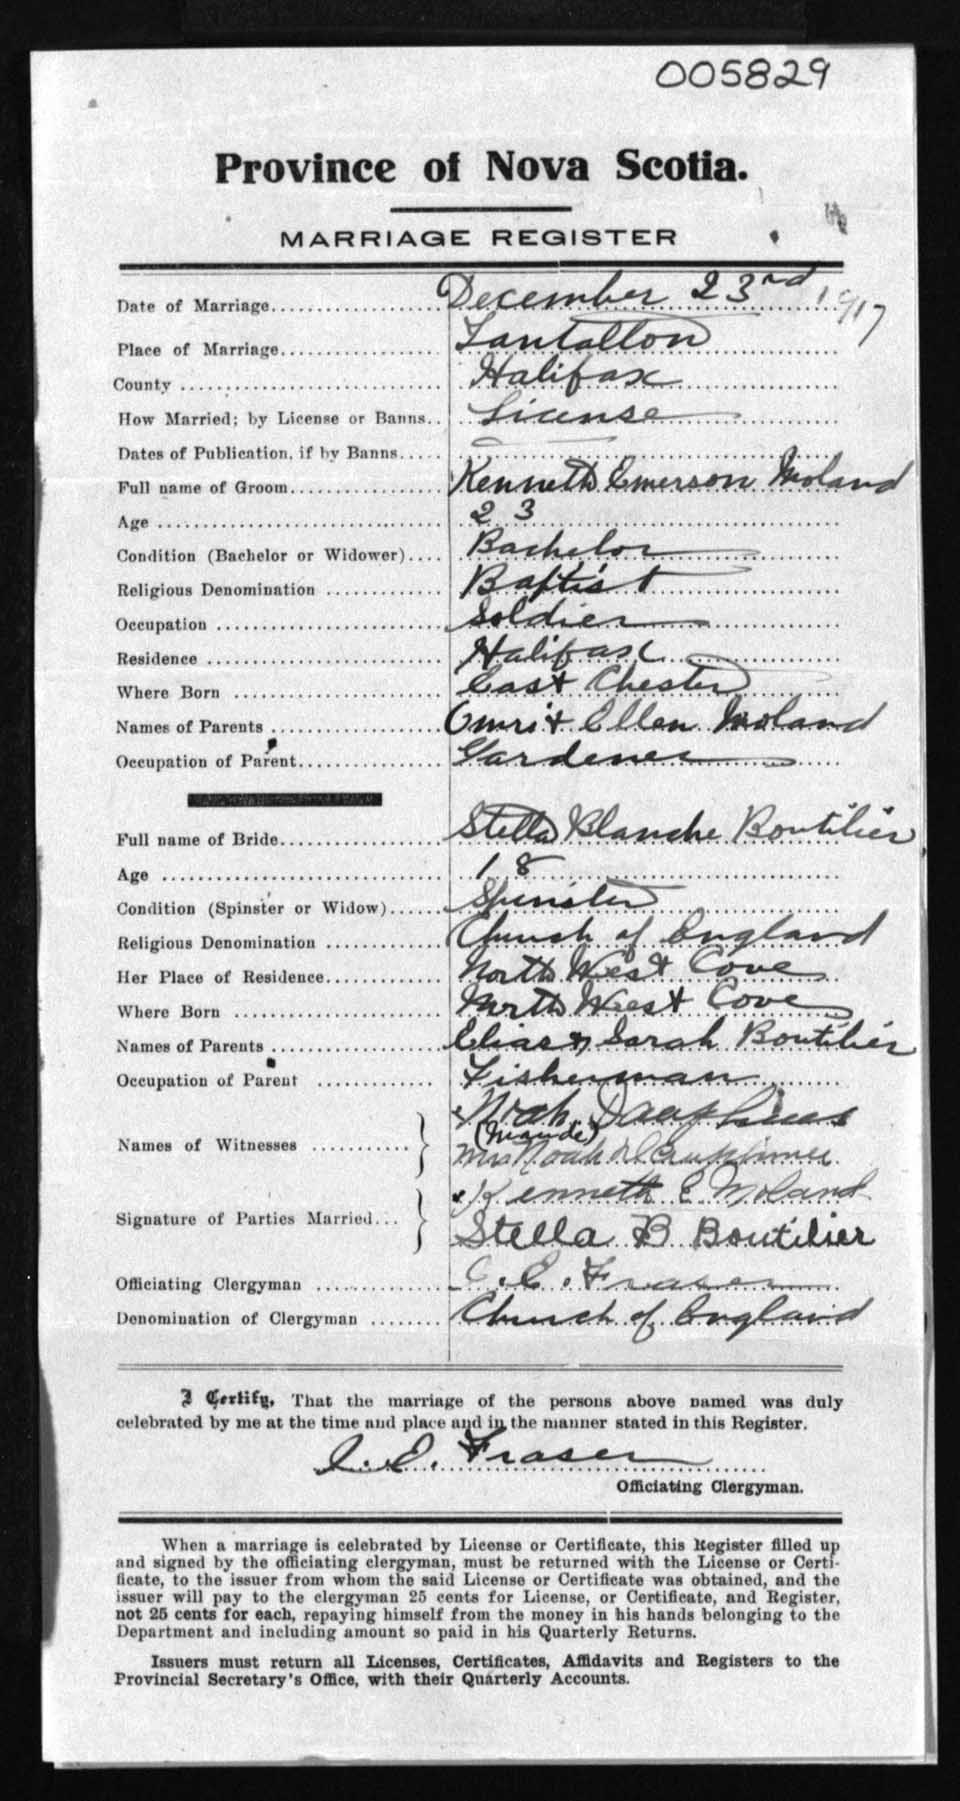 005829
Province of Nova Scotia.
MARRIAGE REGISTER
Date of Marriage December 23rd 1917
Place of Marriage Tantallon
County Halifax
How Married; by License or Banns License
Dates of Publication, if by Banns
Full name of Groom Kenneth Emerson Moland
Age 23
Condition (Bachelor or Widower) Bachelor
Religious Denomination Baptist
Occupation Soldier
Residence Halifax
Where Born East Chester
Names of Parents Omri + Ellen Moland
Occupation of Parent Gardener
Full name of Bride Stella Blanche Boutilier
Age 18
Condition (Spinster or Widow) Spinster
Religious Denomination Church of England
Her Place of Residence North West Cove
Where Born North West Cove
Names of Parents Elias & Sarah Boutilier
Occupation of Parent Fisherman
Noah Dauphinee
(Maude)
Names of Witnesses
Mrs Noah Dauphinee
Kenneth E Moland
Signature of Parties Married
Stella B Boutilier
Officiating Clergyman C. E. Fraser
Denomination of Clergyman Church of England
I Certify, That the marriage of the persons above named was duly
celebrated by me at the time and place and in the manner stated in this Register.
C. E. Fraser
Officiating Clergyman.
When a marriage is celebrated by License or Certificate, this Register filled up
and signed by the officiating clergyman, must be returned with the License or Certi-
ficate, to the issuer from whom the said License or Certificate was obtained, and the
issuer will pay to the clergyman 25 cents for License, or Certificate, and Register,
not 25 cents for each, repaying himself from the money in his hands belonging to the
Department and including amount so paid in his Quarterly Returns.
Issuers must return all Licenses, Certificates, Affidavits and Registers to the
Provincial Secretary's Office, with their Quarterly Accounts.